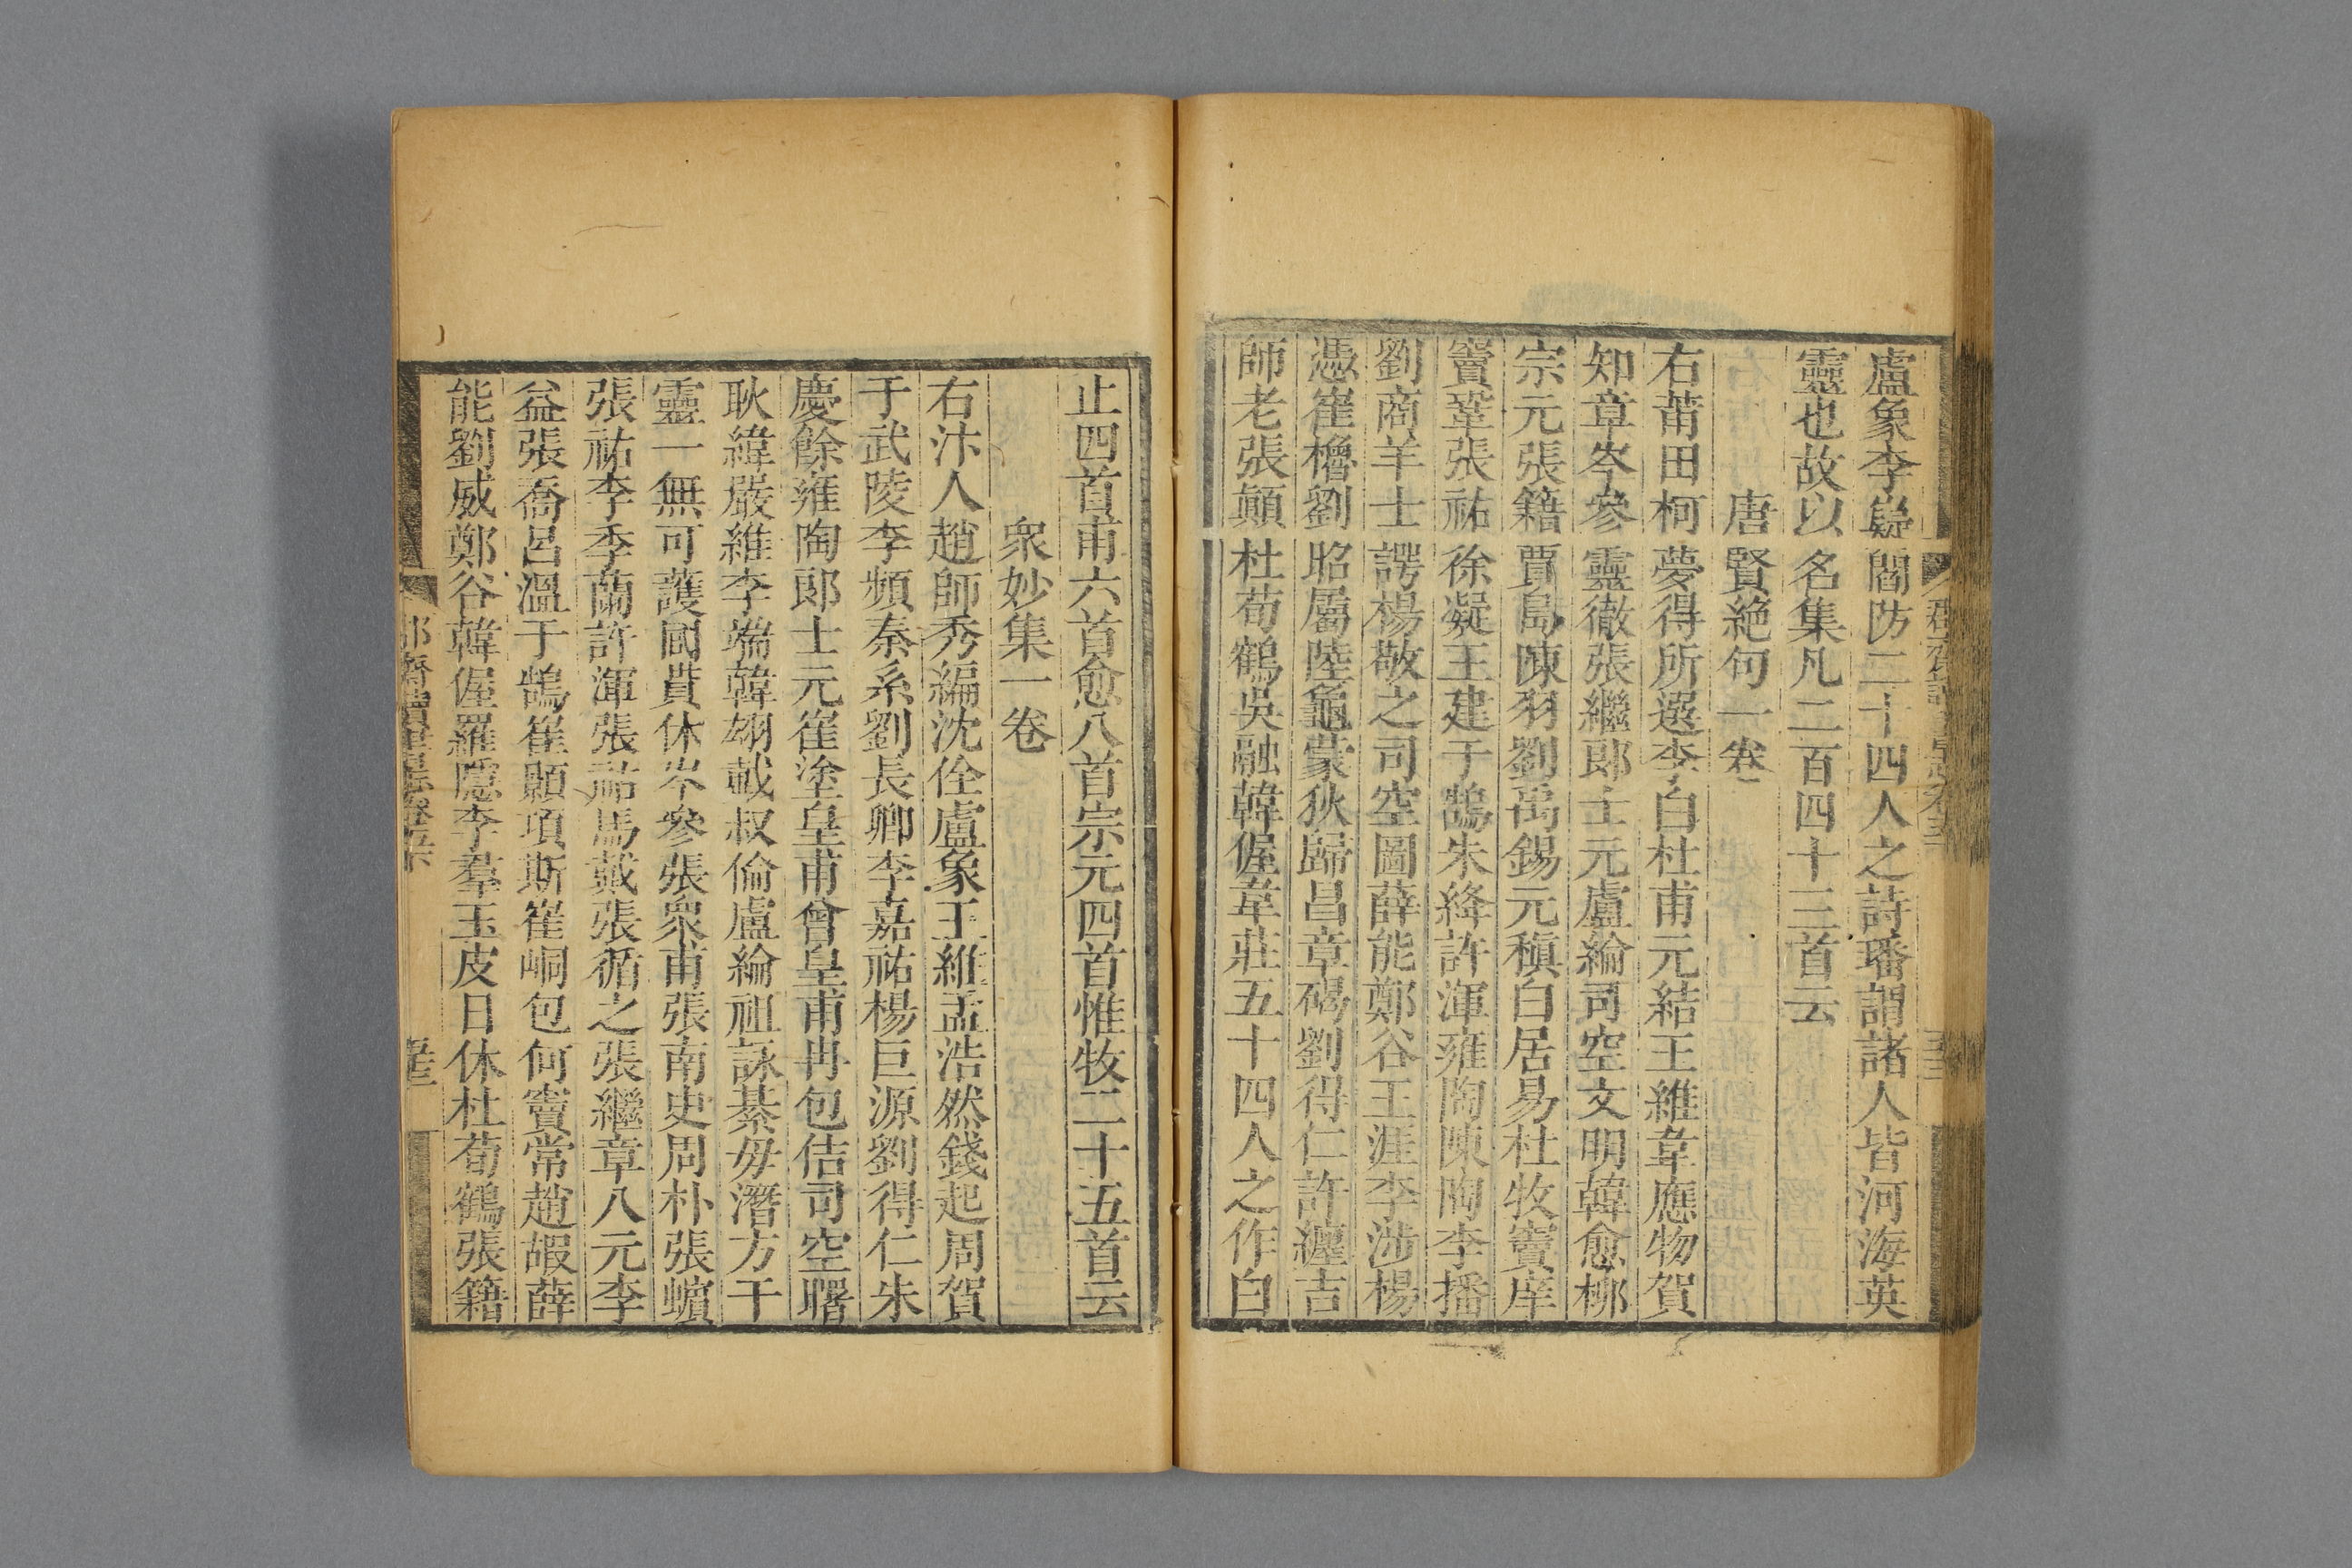 盧象李嶷閻防二十四人之詩璠謂諸人皆河海英
靈也故以名集凡二百四十三首云
唐賢絶句一卷
右莆田柯夢得所選李白杜甫元結王維韋應物賀
知章岑參靈徹張繼郎士元盧綸司空文明韓愈柳
宗元張籍賈島陳羽劉禹錫元稹白居易杜牧竇庠
竇鞏張祜徐凝王建于鵠朱絳許渾雍陶陳陶李播
劉商羊士諤楊敬之司空圖薛能鄭谷王涯李涉楊
憑崔櫓劉昭屬陸龜蒙狄歸昌章碣劉得仁許纏吉
師老張顛杜荀鶴吳融韓偓韋莊五十四人之作白
止四首甫六首愈八首宗元四首惟牧二十五首云
衆妙集一卷
右汴人趙師秀編沈佺盧象王維孟浩然錢起周賀
于武陵李頻秦系劉長卿李嘉祐楊巨源劉得仁朱
慶餘雍陶郎士元崔塗皇甫曾皇甫冉包佶司空曙
耿緯嚴維李端韓翃戴叔倫盧綸祖詠綦毋潛方干
靈一無可護國貫休岑參張衆甫張南史周朴張蠙
張祜李季蘭許渾張祜馬戴張循之張繼章八元李
益張喬呂溫于鵠崔顥項斯崔峒包何竇常趙嘏薛
能劉威鄭谷韓偓羅隱李羣玉皮日休杜荀鶴張籍